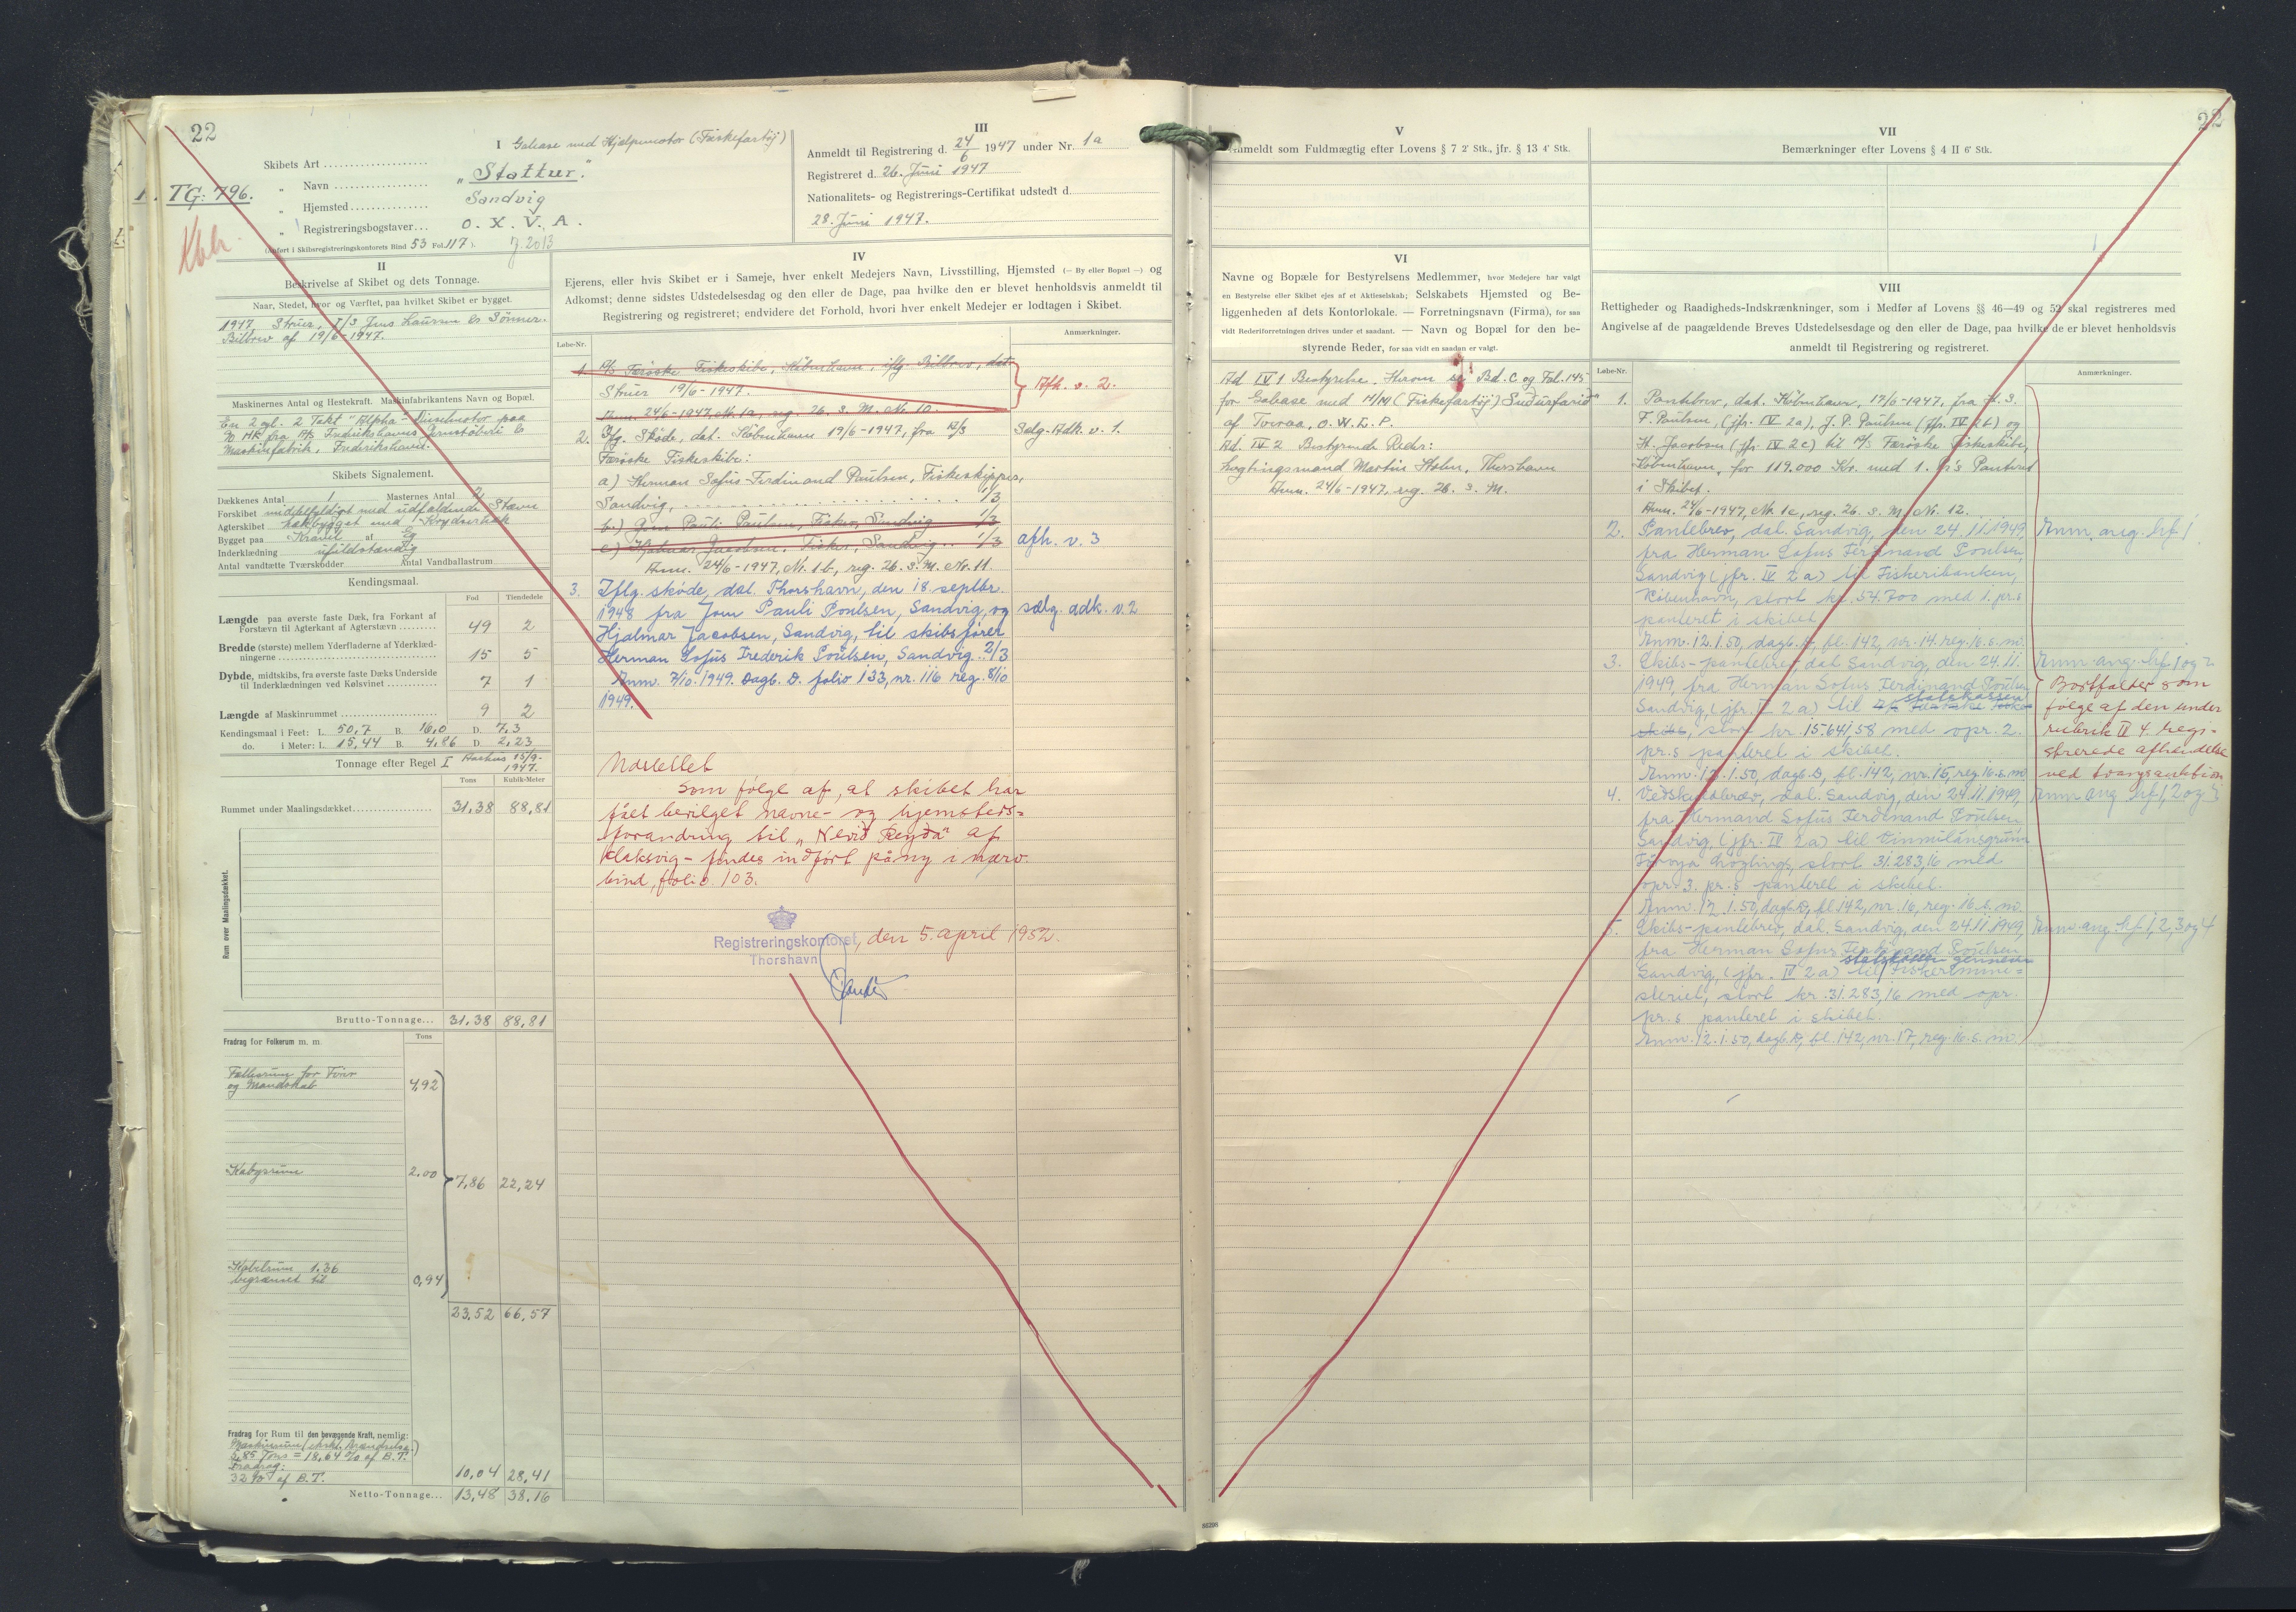 22
TG: 796.
Kblr.
I Galease med Hjælpemotor (Fiskefartøj)
Skibets Art
„ Navn "Stættur."
„ Hjemsted Sandvig
„ Registreringsbogstaver O. X. V. A.
(Anført i Skibsregistreringskontorets Bind 53 Fol. 117).
II
Beskrivelse af Skibet og dets Tonnage.
Naar, Stedet, hvor og Værftet, paa hvilket Skibet er bygget.
1947, Struer, I/S Jens Laursen & Sønner.
Bilbrev af 19/6-1947.
Maskinernes Antal og Hestekraft. Maskinfabrikantens Navn og Bopæl.
En 2 cyl. 2 Takt "Alpha" Dieselmotor paa
90 HK fra A/S Frederikshavns Jernstøberi &
Maskinfabrik, Frederikshavn.
Skibets Signalement.
Dækkenes Antal 1 Masternes Antal 2
Forskibet middelfyldigt med udfaldende Stævn
Agterskibet hækbygget med Krydserhæk
Bygget paa Kravel af Eg
Inderklædning ufuldstændig
Antal vandtætte Tværskodder Antal Vandballastrum
Kendingsmaal.
Fod Tiendedele
Længde paa øverste faste Dæk, fra Forkant af
Forstævn til Agterkant af Agterstævn 49 2
Bredde (største) mellem Yderfladerne af Yderklæd-
ningerne 15 5
Dybde, midtskibs, fra øverste faste Dæks Underside
til Inderklædningen ved Kølsvinet 7 1
Længde af Maskinrummet 9 2
Kendingsmaal i Feet: L. 50,7 B. 16,0 D. 7,3
do. i Meter: L. 15,44 B. 4,86 D. 2,23
Tonnage efter Regel I Aarhus 15/9-
1947.
Tons Kubik-Meter
Rummet under Maalingsdækket 31,38 88,81
Rum over Maalingsdækket.
Brutto-Tonnage... 31,38 88,81
Fradrag for Folkerum m. m. Tons
Fællesrum for Fører
og Mandskab 4,92
Kabysrum 2.00
7,86 22,24
Kabelrum 1.36
begrænset til 0,94
23,52 66,57
Fradrag for Rum til den bevægende Kraft, nemlig:
5,85 Tons = 18,64 % af B.T.
Fradrag:
32 % af B.T. 10,04 28,41
Netto-Tonnage... 13,48 38,16
III
Anmeldt til Registrering d. 24/6 1947 under Nr. 1a
Registreret d. 26. Juni 1947
Nationalitets- og Registrerings-Certifikat udstedt d.
28. Juni 1947.
IV
Ejerens, eller hvis Skibet er i Sameje, hver enkelt Medejers Navn, Livsstilling, Hjemsted (— By eller Bopæl —) og
Adkomst; denne sidstes Udstedelsesdag og den eller de Dage, paa hvilke den er blevet henholdsvis anmeldt til
Registrering og registreret; endvidere det Forhold, hvori hver enkelt Medejer er lodtagen i Skibet.
Løbe-Nr. Anmærkninger.
1. A/S Færøske Fiskeskibe, København, iflg. Bilbrev, dat.
Struer 19/6-1947. Afh. v. 2.
Anm. 24/6-1947, Nr. 1a, reg. 26. s. M. Nr. 10.
2. Iflg. Skøde, dat. København 19/6-1947, fra A/S Sælg. Adk. v. 1.
Færøske Fiskeskibe:
a) Herman Sofus Ferdinand Paulsen, Fiskeskipper,
Sandvig, 1/3
b) Joen Pauli Paulsen, Fisker, Sandvig 1/3
c) Hjalmar Jacobsen, Fisker, Sandvig.. 1/3 afh. v. 3
Anm. 24/6-1947, Nr. 1b, reg. 26. s. M. Nr. 11.
3. Iflg. skøde, dat. Thorshavn, den 18. septbr.
1948 fra Joen Pauli Poulsen, Sandvig, og sælg. adk. v. 2
Hjalmar Jacobsen, Sandvig, til skibsfører
Herman Sofus Frederik Poulsen, Sandvig.. 2/3
Anm. 7/10. 1949. Dagb. D. folio 133, nr. 116 reg. 8/10
1949.
Udslettet
som følge af, at skibet har
fået bevilget navne- og hjemsteds-
forandring til „Nevið Reyða" af
Klaksvig - findes indført påny i nærv.
bind, folio 103.
Registreringskontoret, den 5. april 1952.
Thorshavn
V
Anmeldt som Fuldmægtig efter Lovens § 7 2' Stk., jfr. § 13 4' Stk.
VI
Navne og Bopæle for Bestyrelsens Medlemmer, hvor Medejere har valgt
en Bestyrelse eller Skibet ejes af et Aktieselskab; Selskabets Hjemsted og Be-
liggenheden af dets Kontorlokale. — Forretningsnavn (Firma), for saa
vidt Rederiforretningen drives under et saadant. — Navn og Bopæl for den be-
styrende Reder, for saa vidt en saadan er valgt.
Ad IV 1 Bestyrelse, Herom se Bd. C og Fol. 145
for Galease med M/M (Fiskefartøj) "Suðurfarið"
af Tveraa, O.W.L.P.
Ad. IV 2 Bestyrende Reder:
Lagtingsmand Martin Holm, Thorshavn
Anm. 24/6-1947, reg. 26. s. M.
VII
Bemærkninger efter Lovens § 4 II 6' Stk.
22
VIII
Rettigheder og Raadigheds-Indskrænkninger, som i Medfør af Lovens §§ 46—49 og 52 skal registreres med
Angivelse af de paagældende Breves Udstedelsesdage og den eller de Dage, paa hvilke de er blevet henholdsvis
anmeldt til Registrering og registreret.
Løbe-Nr. Anmærkninger.
1. Pantebrev, dat. København, 17/6-1947, fra H. S.
F. Paulsen, (jfr. IV 2a), J. P. Paulsen (jfr. IV 2b) og
H. Jacobsen (jfr. IV 2c) til A/S Færøske Fiskeskibe,
København, for 119.000 Kr. med 1. Pr's Panteret
i Skibet.
Anm. 24/6-1947, Nr. 1c, reg. 26. s. M. Nr. 12.
2. Pantebrev, dat. Sandvig, den 24. 11. 1949, Anm. ang. hf. 1.
fra Herman Sofus Ferdinand Poulsen,
Sandvig (jfr. IV 2a) til Fiskeribanken,
København, stort kr. 54.700 med 1. pr.s
panteret i skibet.
Anm. 12.1.50, dagb. D, fl. 142, nr. 14. reg. 16. s. m.
3. Skibs-pantebrev, dat. Sandvig, den 24. 11. Anm. ang. hf. 1 og 2
1949, fra Herman Sofus Ferdinand Poulsen,
Sandvig, (jfr. IV 2a) til statskassen
stort kr. 15.641,58 med opr. 2.
pr.s panteret i skibet.
Anm. 12.1.50, dagb. D, fl. 142, nr. 15, reg. 16. s. m.
Bortfalder som
følge af den under
rubrik IV 4. regi-
strerede afhændelse
ved tvangsauktion
4. Anm. ang. hf. 1, 2 og 3
dat. Sandvig, den 24.11.1949,
fra Hermand Sofus Ferdinand Poulsen,
Sandvig, (jfr. IV 2a) til Vinnulánsgrunn
Føroya Løgtings, stort 31.283,16 med
opr. 3. pr.s panteret i skibet.
Anm. 12.1.50, dagb. D, fl. 142, nr. 16, reg. 16. s. m.
5. Skibs-pantebrev, dat. Sandvig, den 24.11.1949, Anm. ang. hf. 1, 2, 3 og 4
fra Herman Sofus Ferdinand Poulsen,
Sandvig, (jfr. IV 2a) til statskassen gennem Fiskerimini-
steriet, stort kr. 31.283,16 med opr.
pr.s panteret i skibet.
Anm. 12.1.50, dagb. D, fl. 142, nr. 17, reg. 16. s. m.